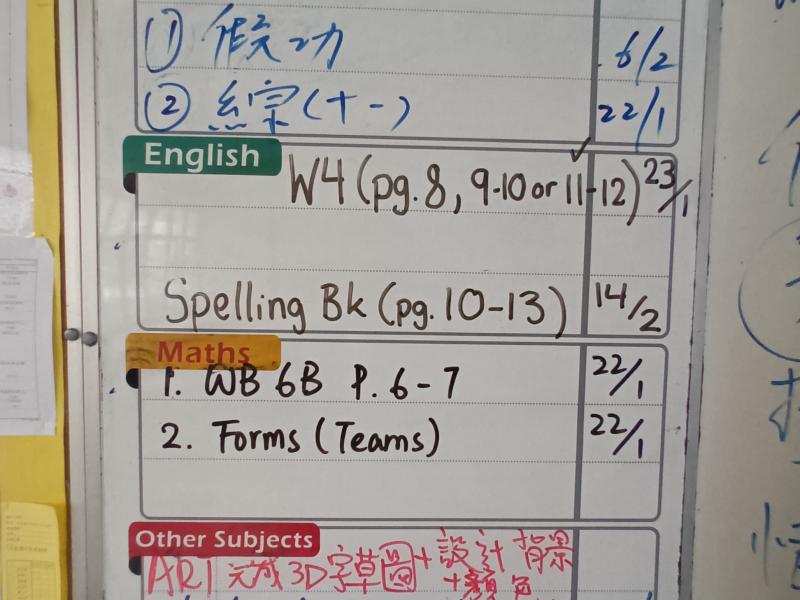 ① 假功 6/2
② 綜(十一) 22/1
English
W4 (pg. 8, 9-10 or 11-12) 23/1
Spelling Bk (pg. 10-13) 14/2
Maths
1. WB 6B P. 6-7 22/1
2. Forms (Teams) 22/1
Other Subjects
ART 完成3D字草圖+設計背景
+顏色